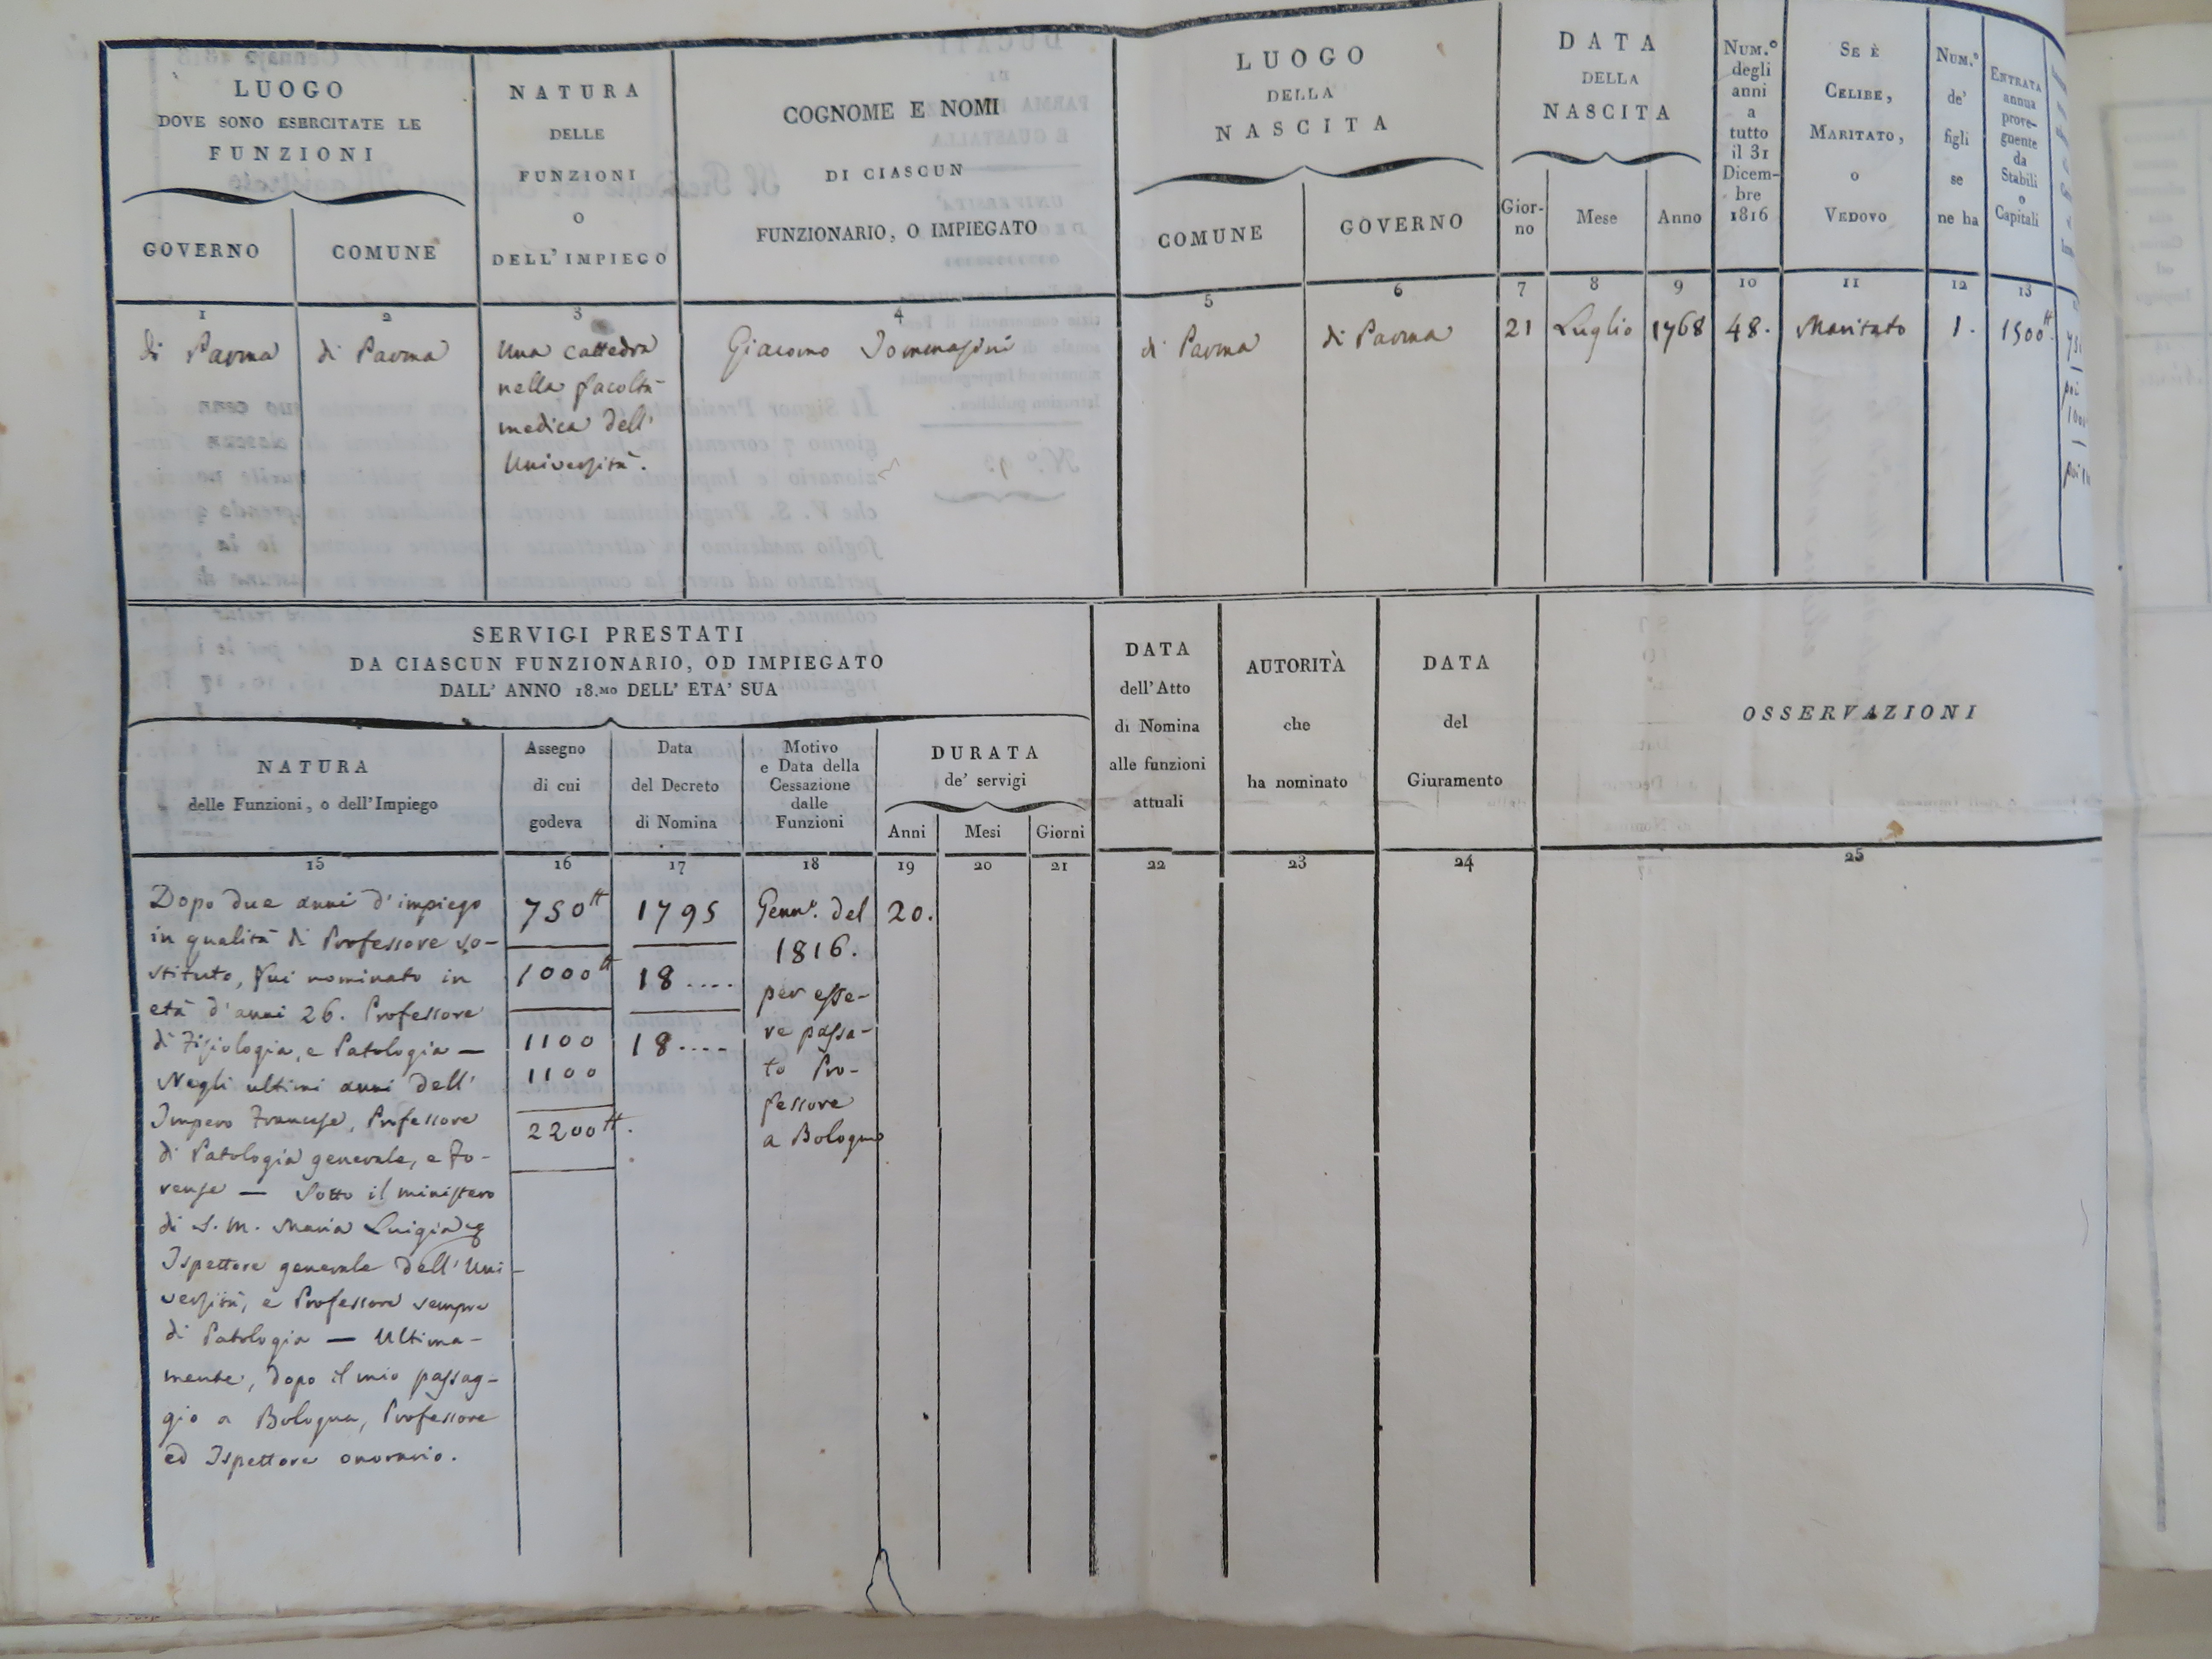 LUOGO
DOVE SONO ESERCITATE LE
FUNZIONI
GOVERNO
COMUNE
NATURA
DELLE
FUNZIONI
O
DELL' IMPIEGO
COGNOME E NOMI
DI CIASCUN
FUNZIONARIO, O IMPIEGATO
LUOGO
DELLA
NASCITA
COMUNE
GOVERNO
DATA
DELLA
NASCITA
Gior-
no
Mese
Anno
NUM.º
degli
anni
a
tutto
il 31
Dicem-
bre
1816
SE È
CELIBE,
MARITATO,
O
VEDOVO
NUM.º
de'
figli
se
ne ha
ENTRATA
annua
prove-
gnente
da
Stabili
o
Capitali
1 2 3 4 5 6 7 8 9 10 11 12 13
di Parma
di Parma
Una cattedra
nella facoltà
medica dell'
Università.
Giacomo Tommasini
di Parma
di Parma
21
Luglio
1768
48.
Maritato
1.
1500tt.
poi
SERVIGI PRESTATI
DA CIASCUN FUNZIONARIO, OD IMPIEGATO
DALL' ANNO 18.MO DELL' ETA' SUA
NATURA
delle Funzioni, o dell'Impiego
Assegno
di cui
godeva
Data
del Decreto
di Nomina
Motivo
e Data della
Cessazione
dalle
Funzioni
DURATA
de' servigi
Anni
Mesi
Giorni
DATA
dell'Atto
di Nomina
alle funzioni
attuali
AUTORITÀ
che
ha nominato
DATA
del
Giuramento
OSSERVAZIONI
15 16 17 18 19 20 21 22 23 24 25
Dopo due anni d'impiego
in qualità di Professore so-
stituto, fui nominato in
età d'anni 26. Professore
di Fisiologia, e Patologia —
Negli ultimi anni dell'
Impero Francese, Professore
di Patologia generale, e fo-
rense — Sotto il ministero
di S. M. Maria Luigia
Ispettore generale dell'Uni-
versità, e Professore sempre
di Patologia — Ultima-
mente, dopo il mio passag-
gio a Bologna, Professore
ed Ispettore onorario.
750tt
1000tt
1100
1100
2200tt.
1795
18....
18....
Genn.º del
1816.
per esse-
re passa-
to Pro-
fessore
a Bologna
20.